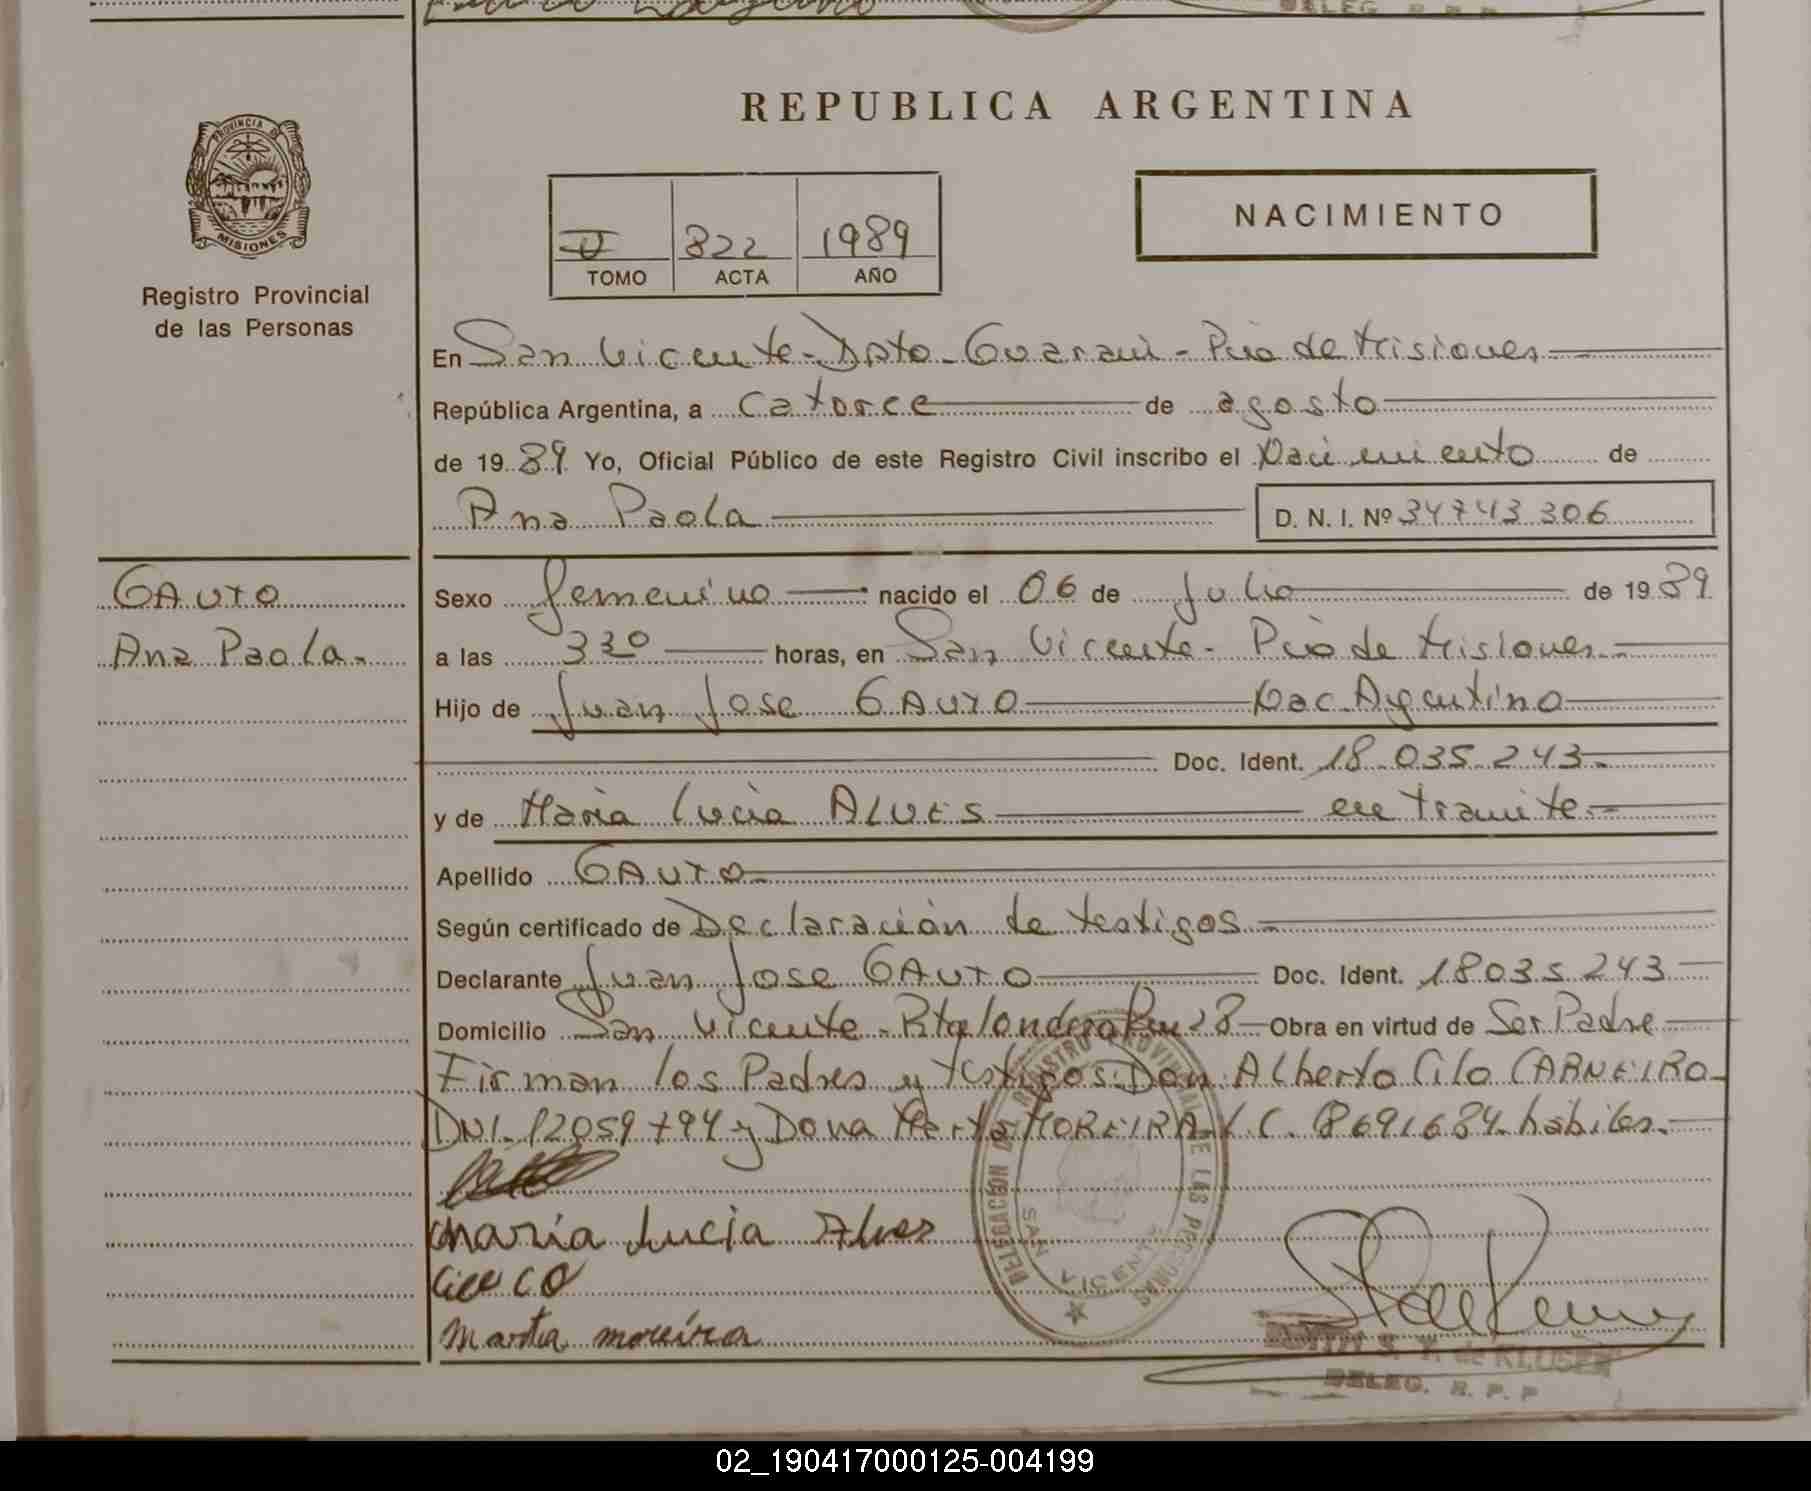 REPUBLICA ARGENTINA
PROVINCIA DE
MISIONES
Registro Provincial
de las Personas
822 1989
TOMO ACTA AÑO
NACIMIENTO
En San Vicente - Dpto - Guarani - Pcia de Misiones
República Argentina, a catorce de agosto
de 1989 Yo, Oficial Público de este Registro Civil inscribo el Nacimiento de
Ana Paola D. N. I. Nº 34743306
GAUTO
Ana Paola.
Sexo femenino nacido el 06 de Julio de 1989
a las 330 horas, en San Vicente - Pcia de Misiones
Hijo de Juan Jose GAUTO Nac. Argentino
Doc. Ident. 18.035.243.
y de Maria Lucia ALVES en tramite
Apellido GAUTO
Según certificado de Declaración de testigos
Declarante Juan Jose GAUTO Doc. Ident. 18035243
Domicilio San Vicente - Rta 28 Obra en virtud de Ser Padre
Firman los Padres y testigos: Don Alberto Cilo CARNEIRO
DNI. 12059794 y Doña MOREIRA L.C. 8691684. habiles.
DELEGACION DE REGISTRO PROVINCIAL DE LAS PERSONAS
SAN VICENTE
Maria Lucia Alves
Marta moreira
S. T. de KLUSER
DELEG. R. P. P
02_190417000125-004199